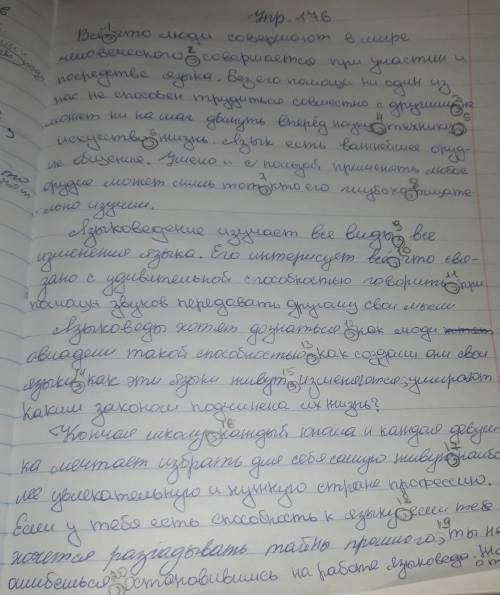 Упр. 176
Всё, 1 что люди совершают в мире
человеческого, 2 совершается при участии и
посредстве языка. Без его помощи ни один из
нас не способен трудиться совместно с другими, 3 не
может ни на шаг двинуть вперёд науку, 4 технику, 5
искусство, 6 жизнь. Язык есть важнейшее оруд-
ие общения. Умело и с пользой применять любое
орудие может лишь тот, 7 кто его глубоко, 8 тщате-
льно изучил.
Языковедение изучает все виды, 9 все
изменения языка. Его интересует всё, 10 что свя-
зано с удивительной способностью говорить, 11 при
помощи звуков передавать другому свои мысли
Языковеды хотят дознаться, 12 как люди
овладели такой способностью, 13 как создали они свои
языки, 14 как эти языки живут, 15 изменяются, умирают
Каким законом подчинена их жизнь?
Кончая школу, 16 каждый юноша и каждая девуш
ка мечтает избрать для себя самую живую, 17 наибо
лее увлекательную и нужную стране профессию.
Если у тебя есть способность к языку, 18 если тебе
хочется разгадывать тайны прошлого, 19 ты не
ошибешься, 20 остановившись на работе языковеда.